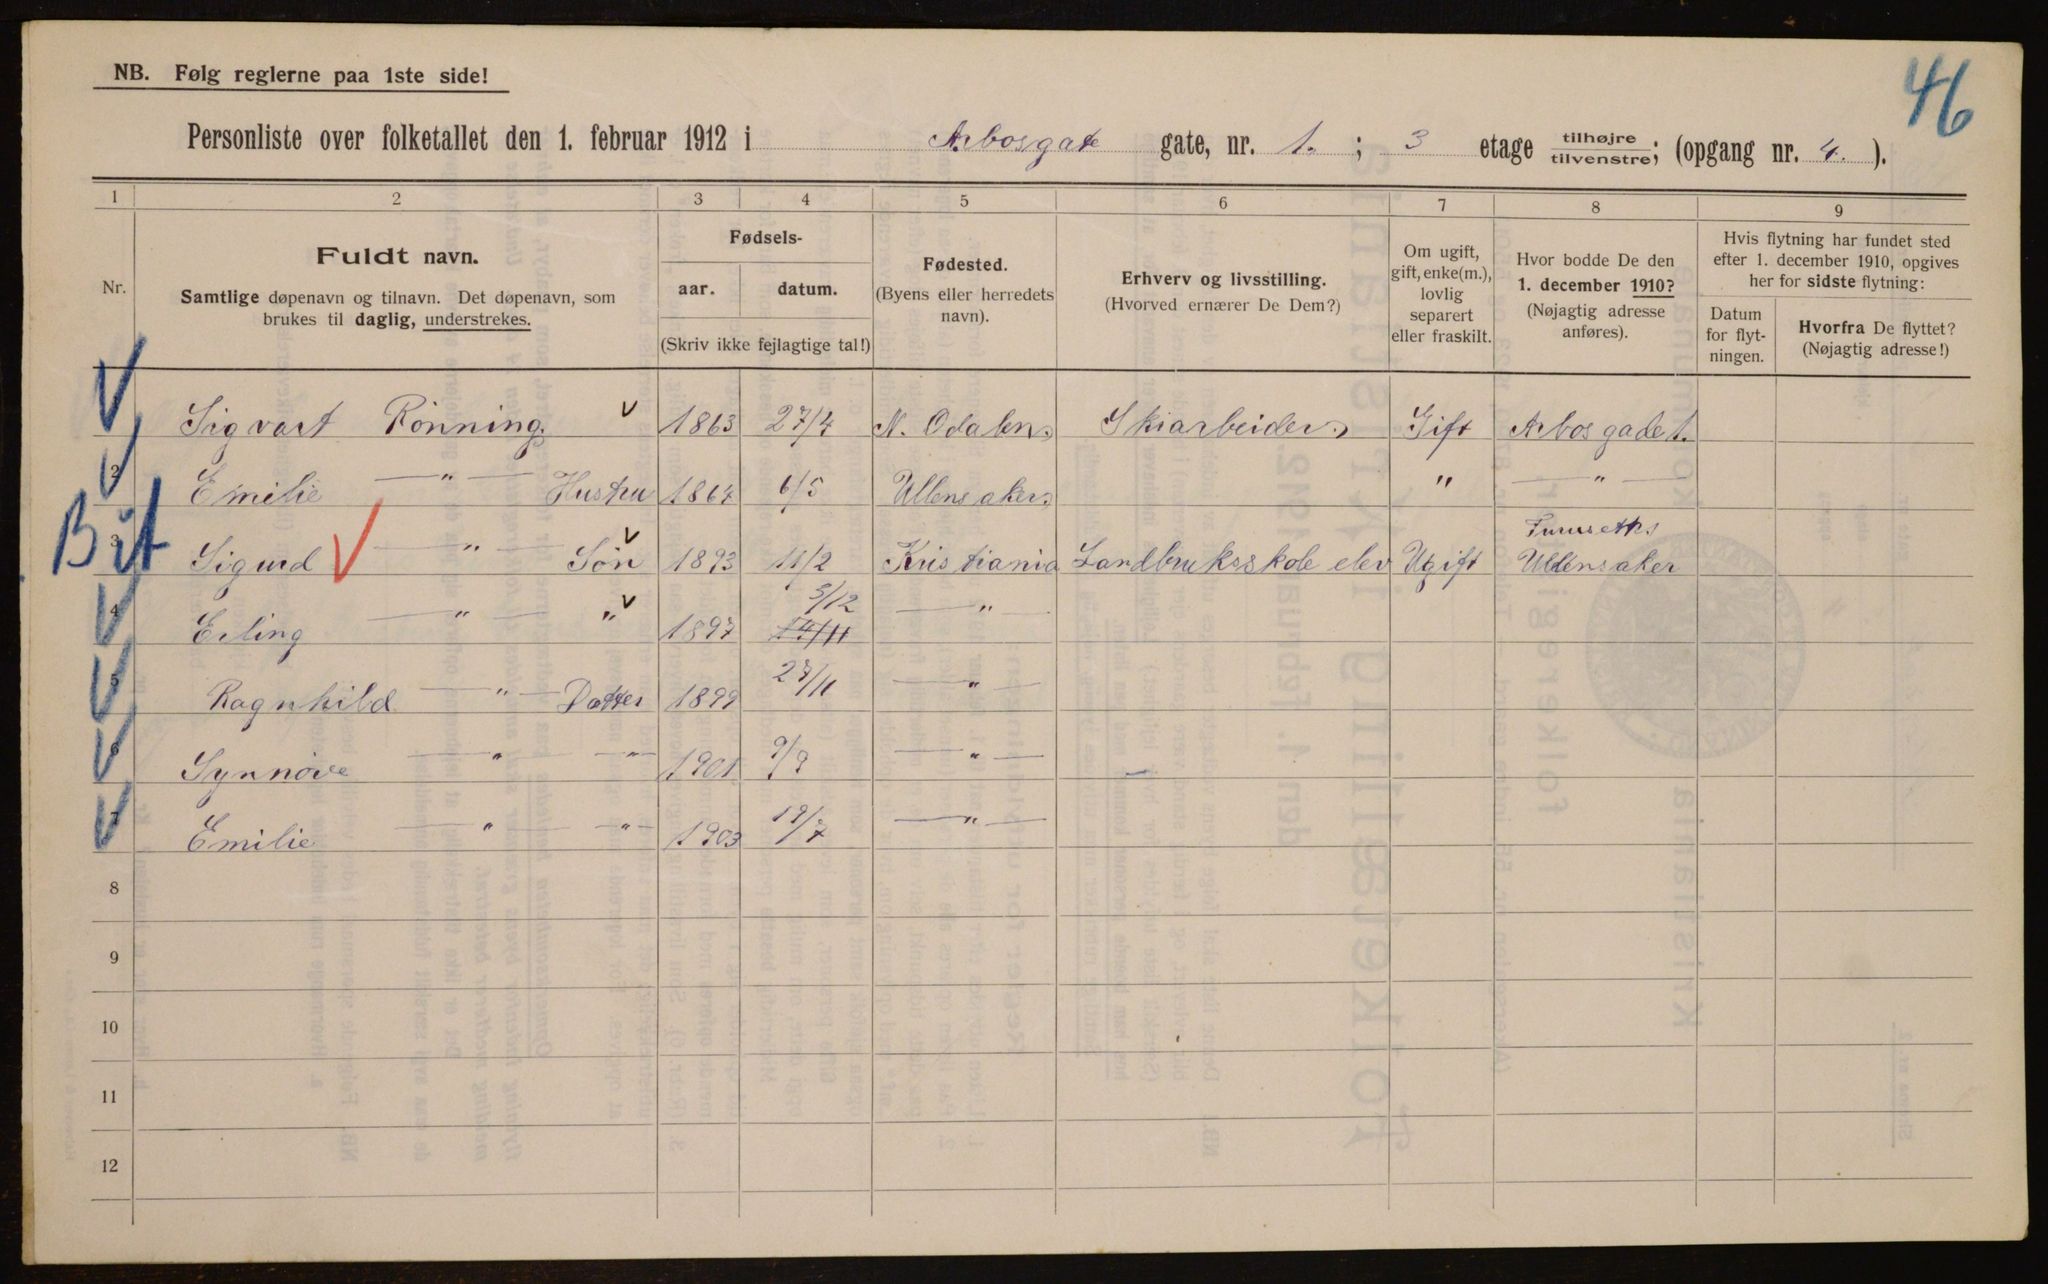 46
NB. Følg reglerne paa 1ste side!
Personliste over folketallet den 1. februar 1912 i Arbosgate gate, nr. 1. ; 3 etage tilhøjre/tilvenstre; (opgang nr. 4. ).
1 2 3 4 5 6 7 8 9
Nr.
Fuldt navn.
Samtlige døpenavn og tilnavn. Det døpenavn, som
brukes til daglig, understrekes.
Fødsels-
aar. datum.
(Skriv ikke fejlagtige tal!)
Fødested.
(Byens eller herredets
navn).
Erhverv og livsstilling.
(Hvorved ernærer De Dem?)
Om ugift,
gift, enke(m.),
lovlig
separert
eller fraskilt.
Hvor bodde De den
1. december 1910?
(Nøjagtig adresse
anføres).
Hvis flytning har fundet sted
efter 1. december 1910, opgives
her for sidste flytning:
Datum
for flyt-
ningen.
Hvorfra De flyttet?
(Nøjagtig adresse!)
Sigvart Rönning. 1863 27/4 N. Odalen. Skiarbeider. Gift Arbosgade 1.
2 Emilie — " — Hustru 1864 6/5 Ullensaker. " — " —
Bit
Furuseths
3 Sigurd — " — Sön 1893 11/2 Kristiania Landbruksskole elev Ugift Ullensaker
4 Erling — " — " 1897 3/12 14/11 — " —
5 Ragnhild — " — Datter 1899 27/11 — " —
6 Synnöve — " — " — 1901 9/9 — " —
7 Emilie — " — " — 1903 19/7 — " —
8
9
10
11
12